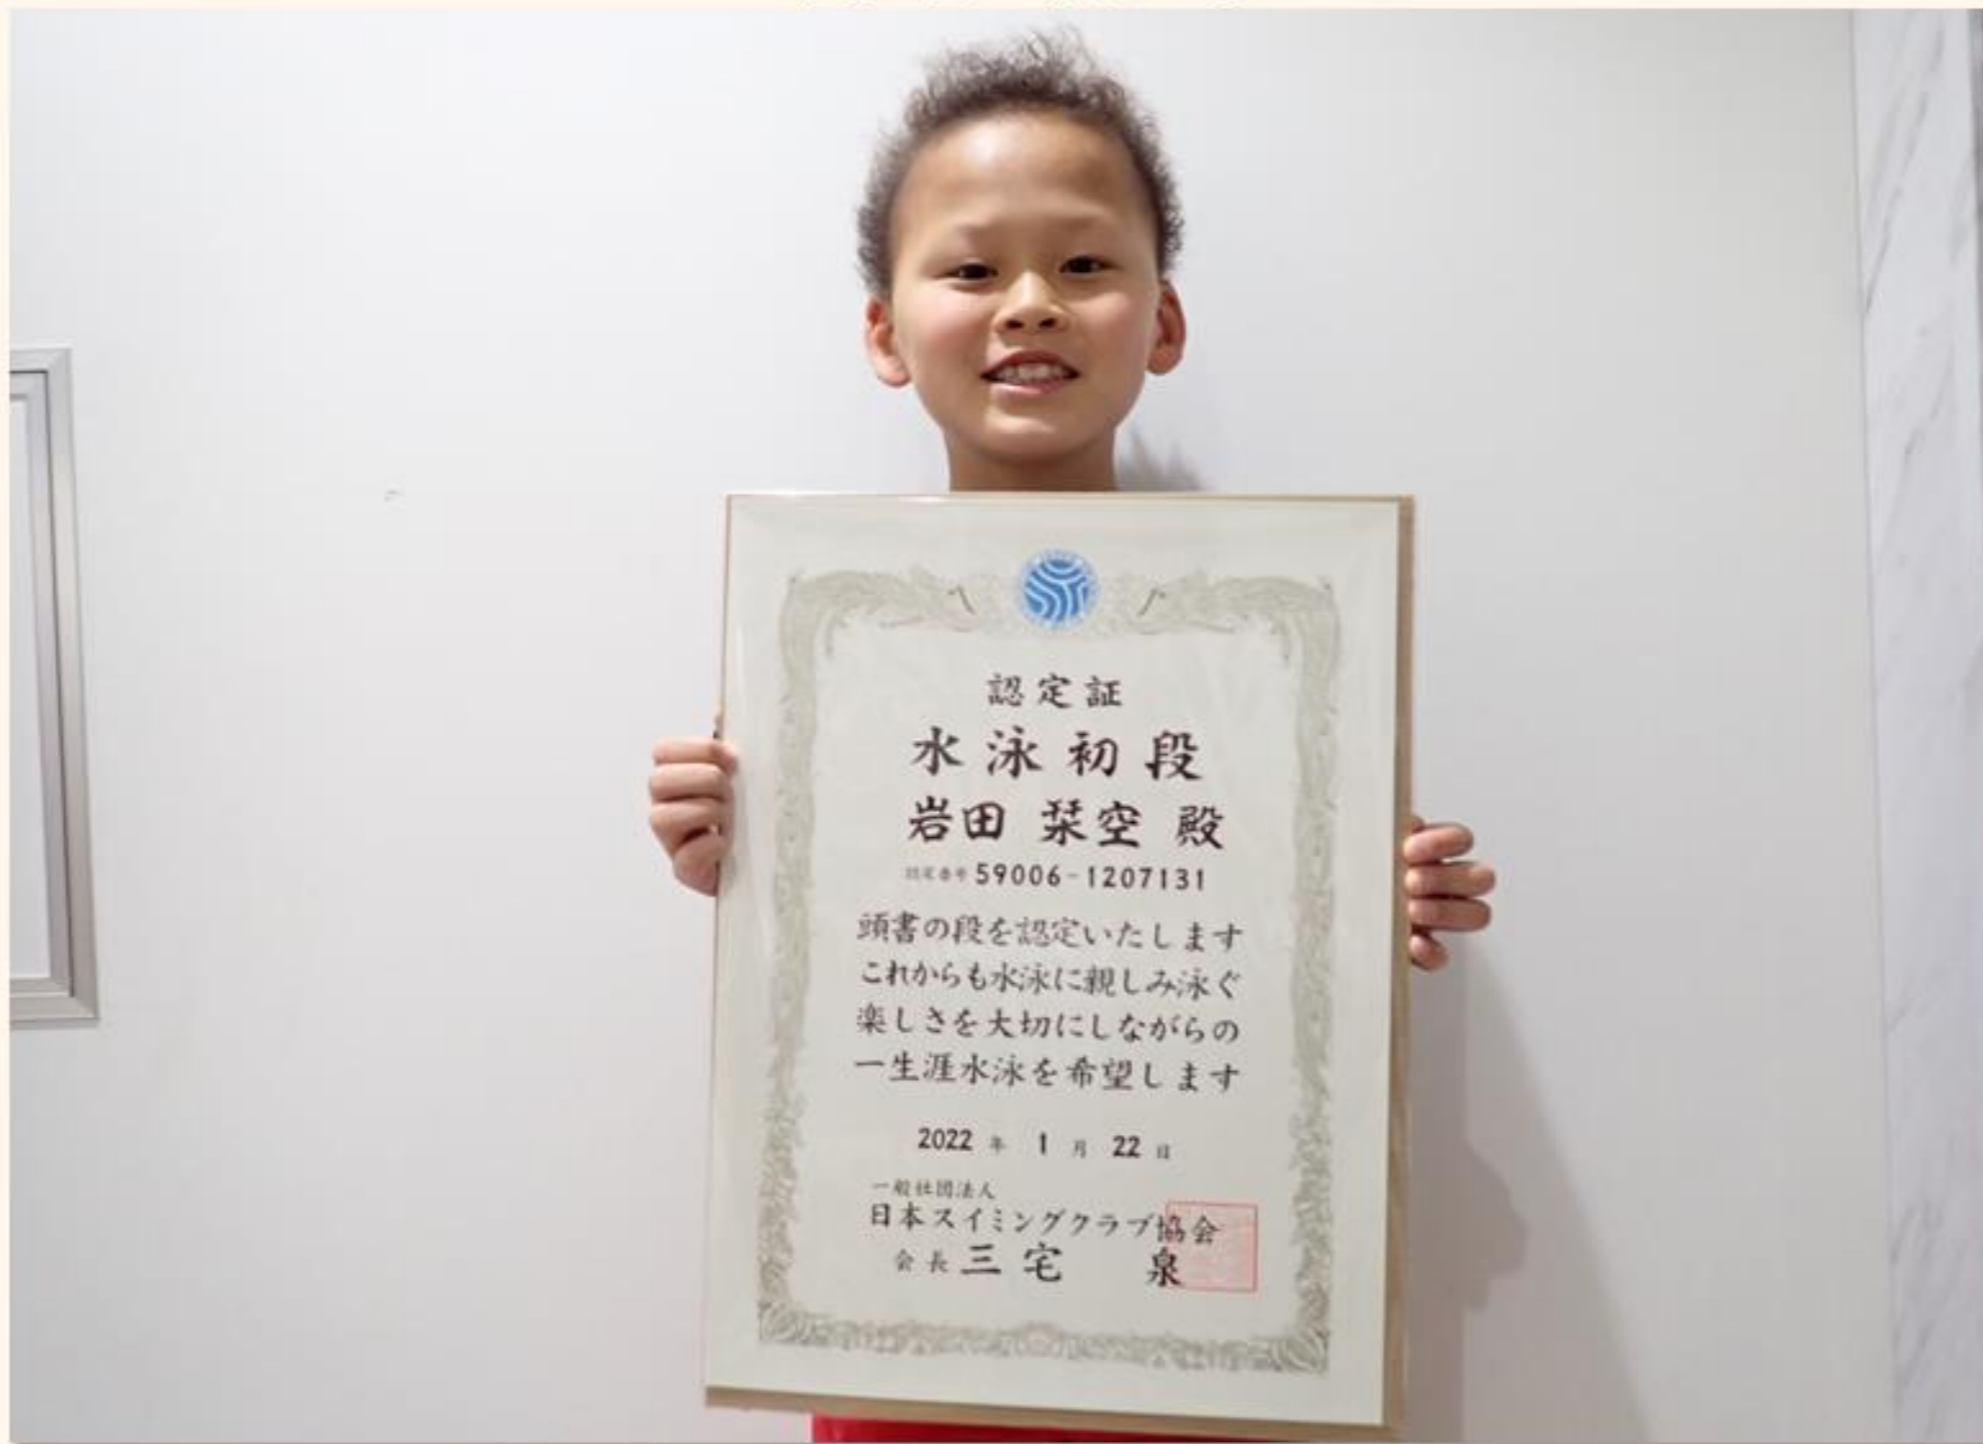 認定証
水泳初段
岩田 栞空 殿
認定番号 59006-1207131
頭書の段を認定いたします
これからも水泳に親しみ泳ぐ
楽しさを大切にしながらの
一生涯水泳を希望します
2022 年 1 月 22 日
一般社団法人
日本スイミングクラブ協会
会長 三宅 泉